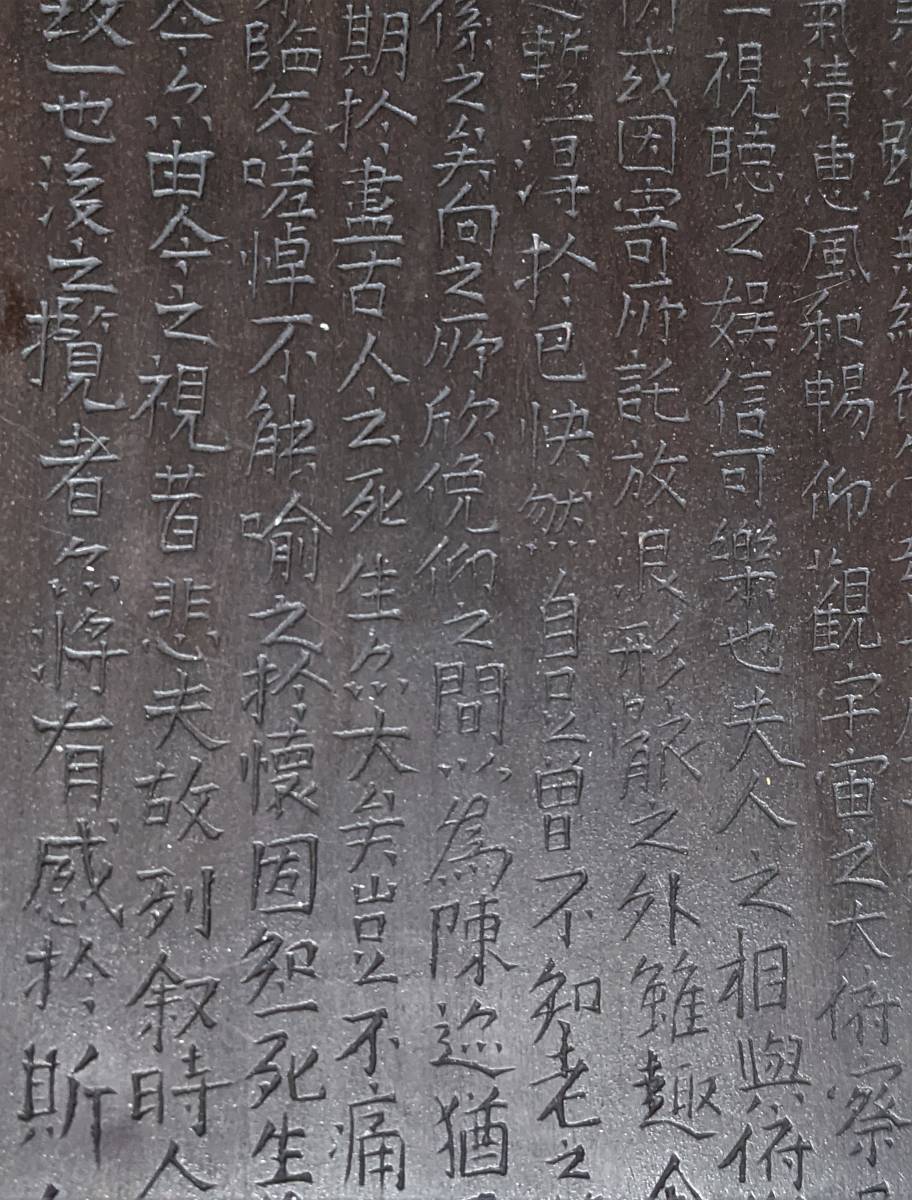 雖無絲
氣清惠風和暢仰觀宇宙之大俯察
一視聽之娛信可樂也夫人之相與俯
或因寄所託放浪形骸之外雖趣
蹔得於己快然自足曾不知老之
係之矣向之所欣俛仰之間以為陳迹猶
期於盡古人云死生亦大矣豈不痛
臨文嗟悼不能喻之於懷固知一死生
今亦由今之視昔悲夫故列叙時人
致一也後之攬者亦將有感於斯